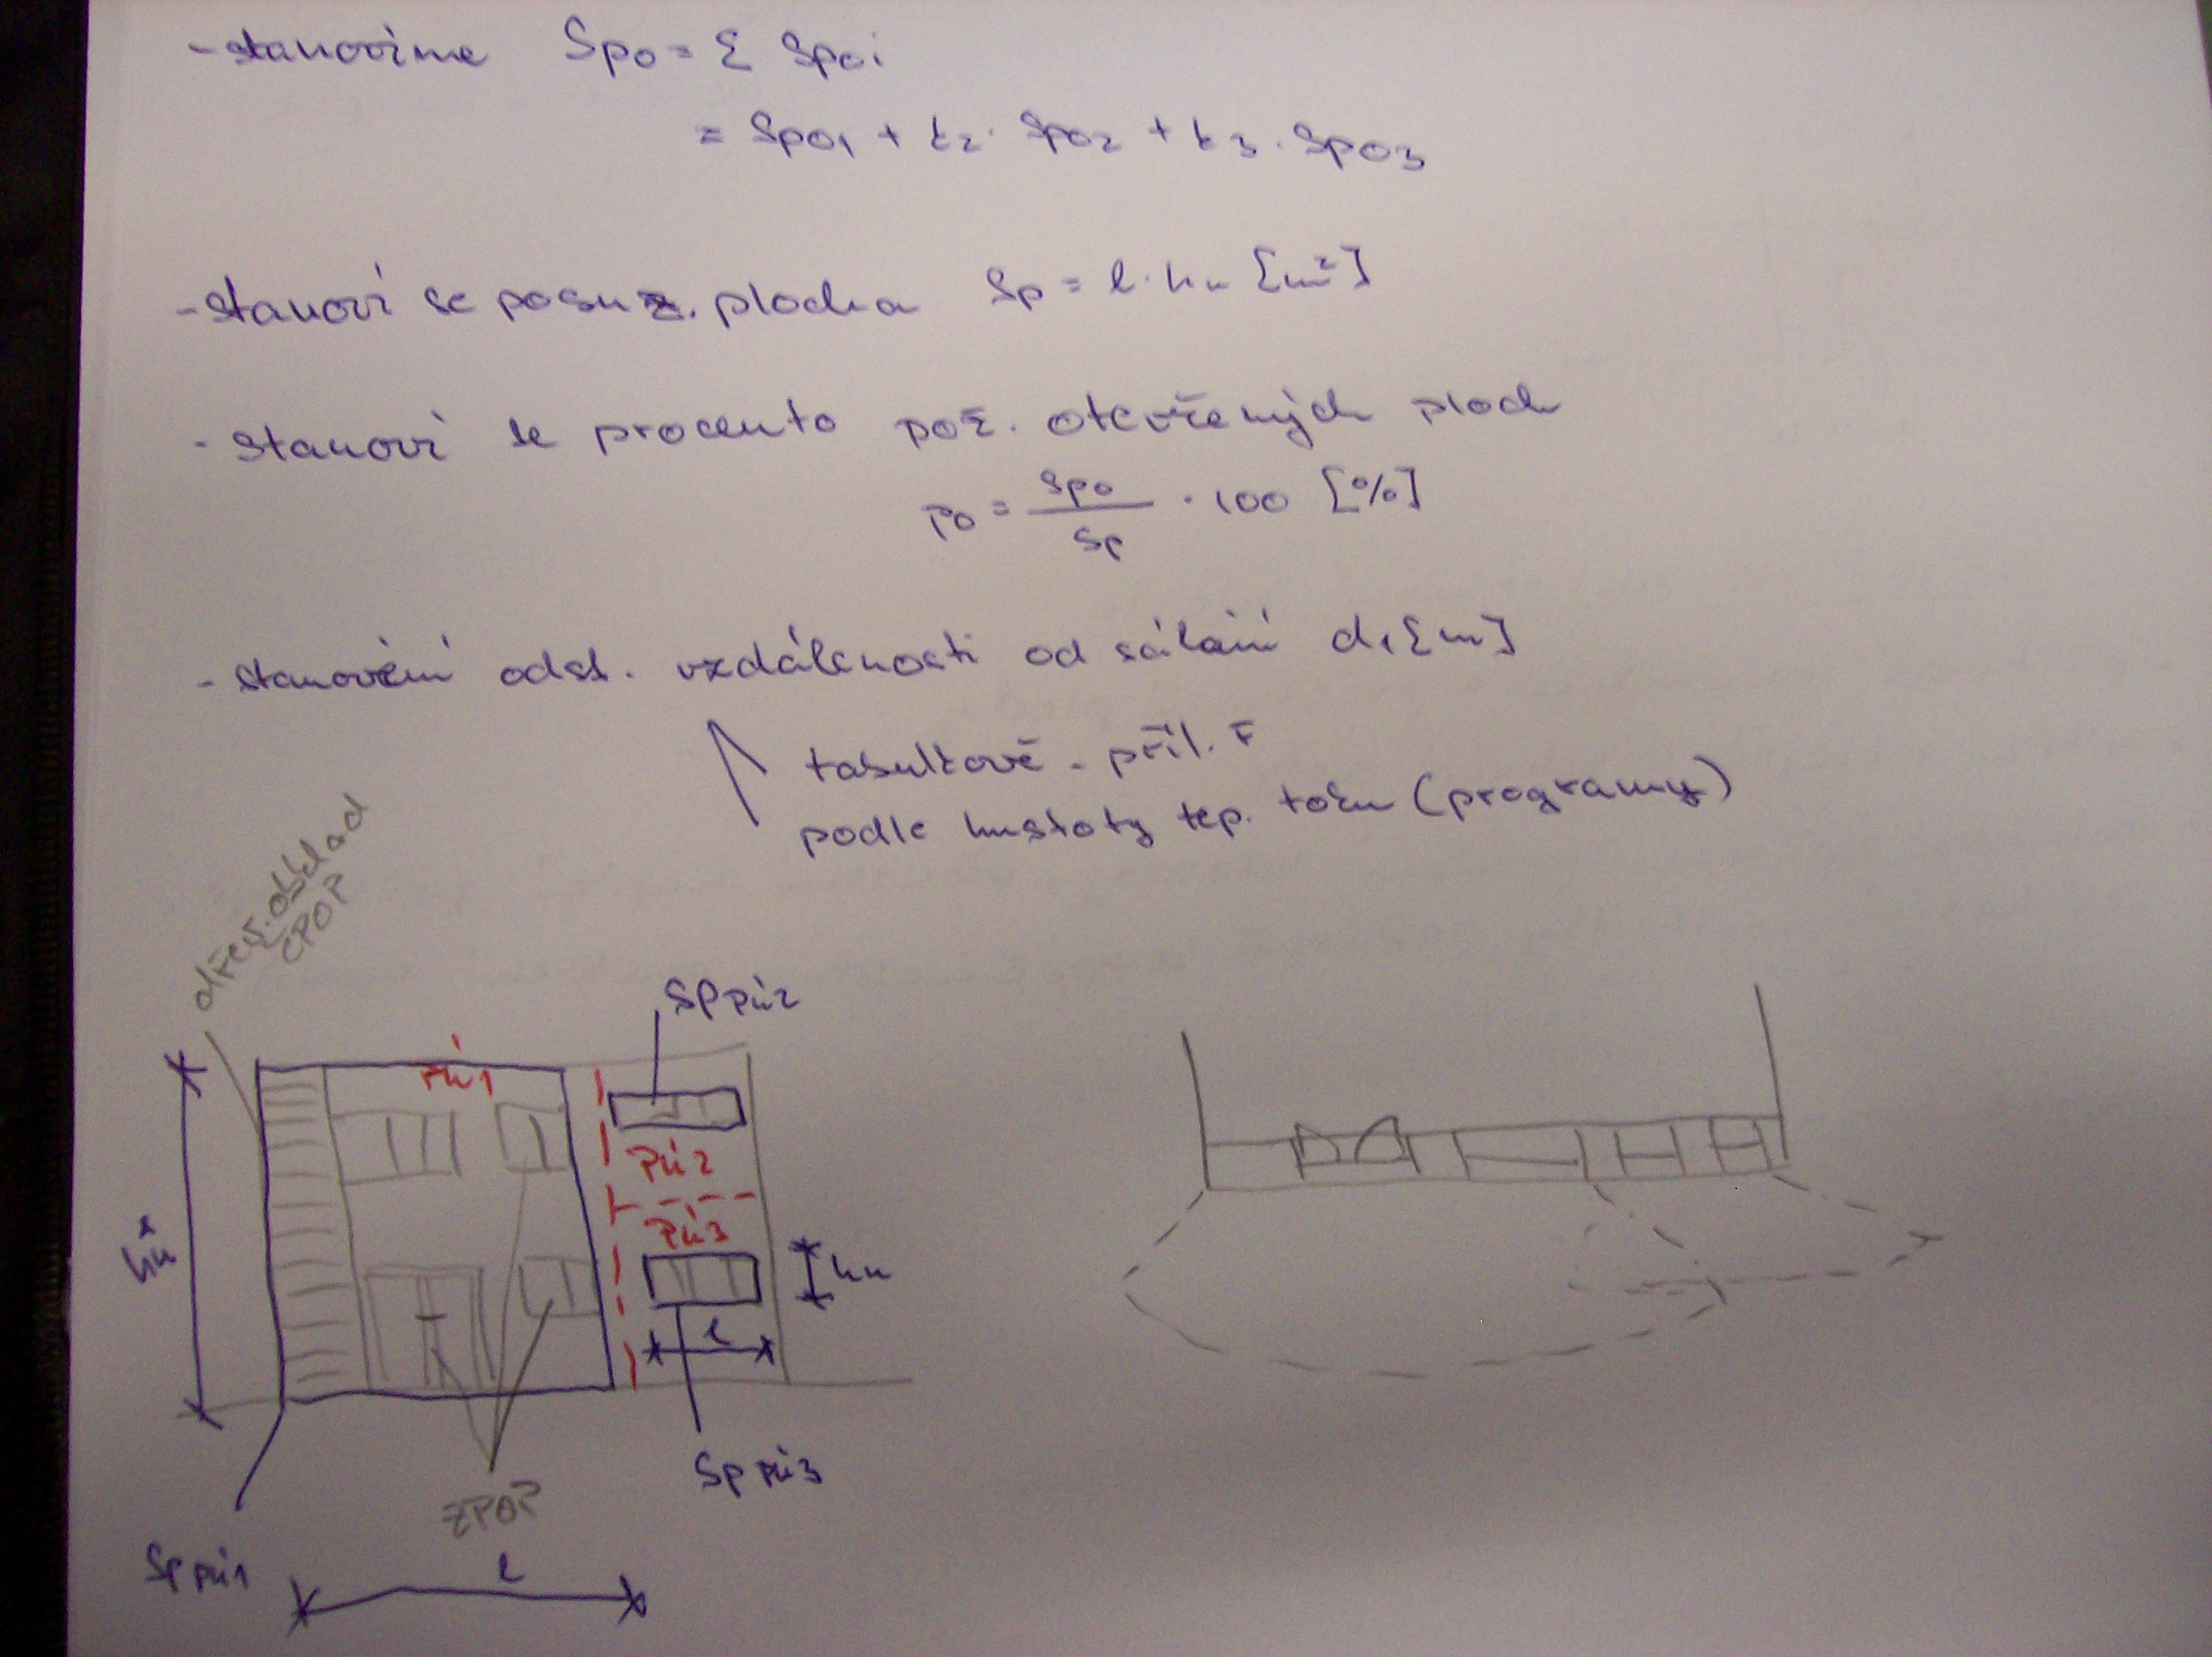 - stanovíme Spo = Σ Spoi
= Spo1 + k2 · Spo2 + k3 · Spo3
- stanoví se posuz. plocha Sp = l · hu [m²]
- stanoví se procento pož. otevřených ploch
po = Spo / Sp · 100 [%]
- stanovení odst. vzdálenosti od sálání d1 [m]
tabulkově - příl. F
podle hustoty tep. toku (programy)
dřev. obklad
ČPOP
Sp PÚ2
PÚ1
PÚ2
PÚ3
hu
hu
l
Sp PÚ3
ZPOP
Sp PÚ1
l